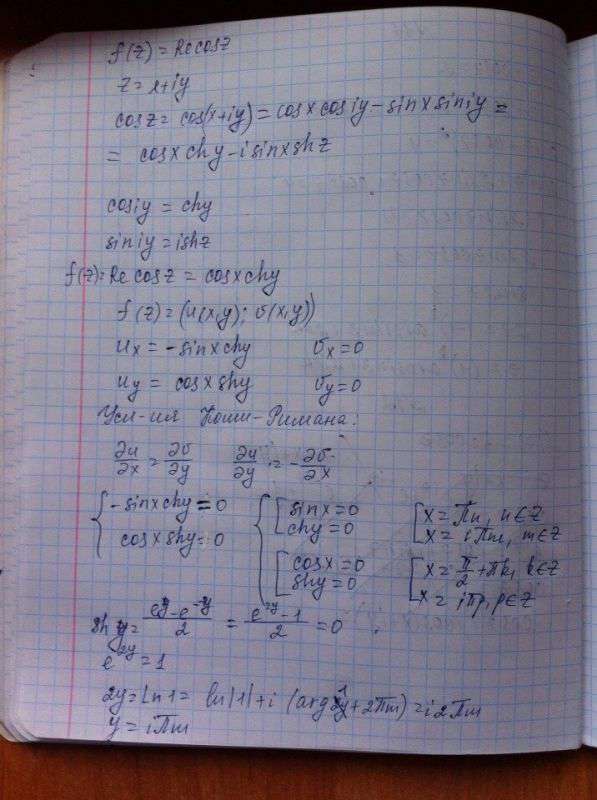 f(z) = Re cosz
z = x+iy
cosz = cos(x+iy) = cosx cosiy - sinx siniy =
= cosx chy - i sinx shz
cosiy = chy
siniy = ishz
f(z) = Re cosz = cosx chy
f(z) = (u(x,y); v(x,y))
u_x = -sinx chy v_x = 0
u_y = cosx shy v_y = 0
Усл-ия Коши-Римана:
∂u/∂x = ∂v/∂y ∂u/∂y = -∂v/∂x
{ -sinx chy = 0 { [ sinx = 0 [ x = πn, n∈Z
chy = 0 x = iπm, m∈Z
cosx shy = 0 [ cosx = 0 [ x = π/2 + πk, k∈Z
shy = 0 x = iπp, p∈Z
sh y = (e^y - e^-y)/2 = (e^2y - 1)/2 = 0
e^2y = 1
2y = Ln1 = ln|1| + i (arg1 + 2πm) = i2πm
y = iπm